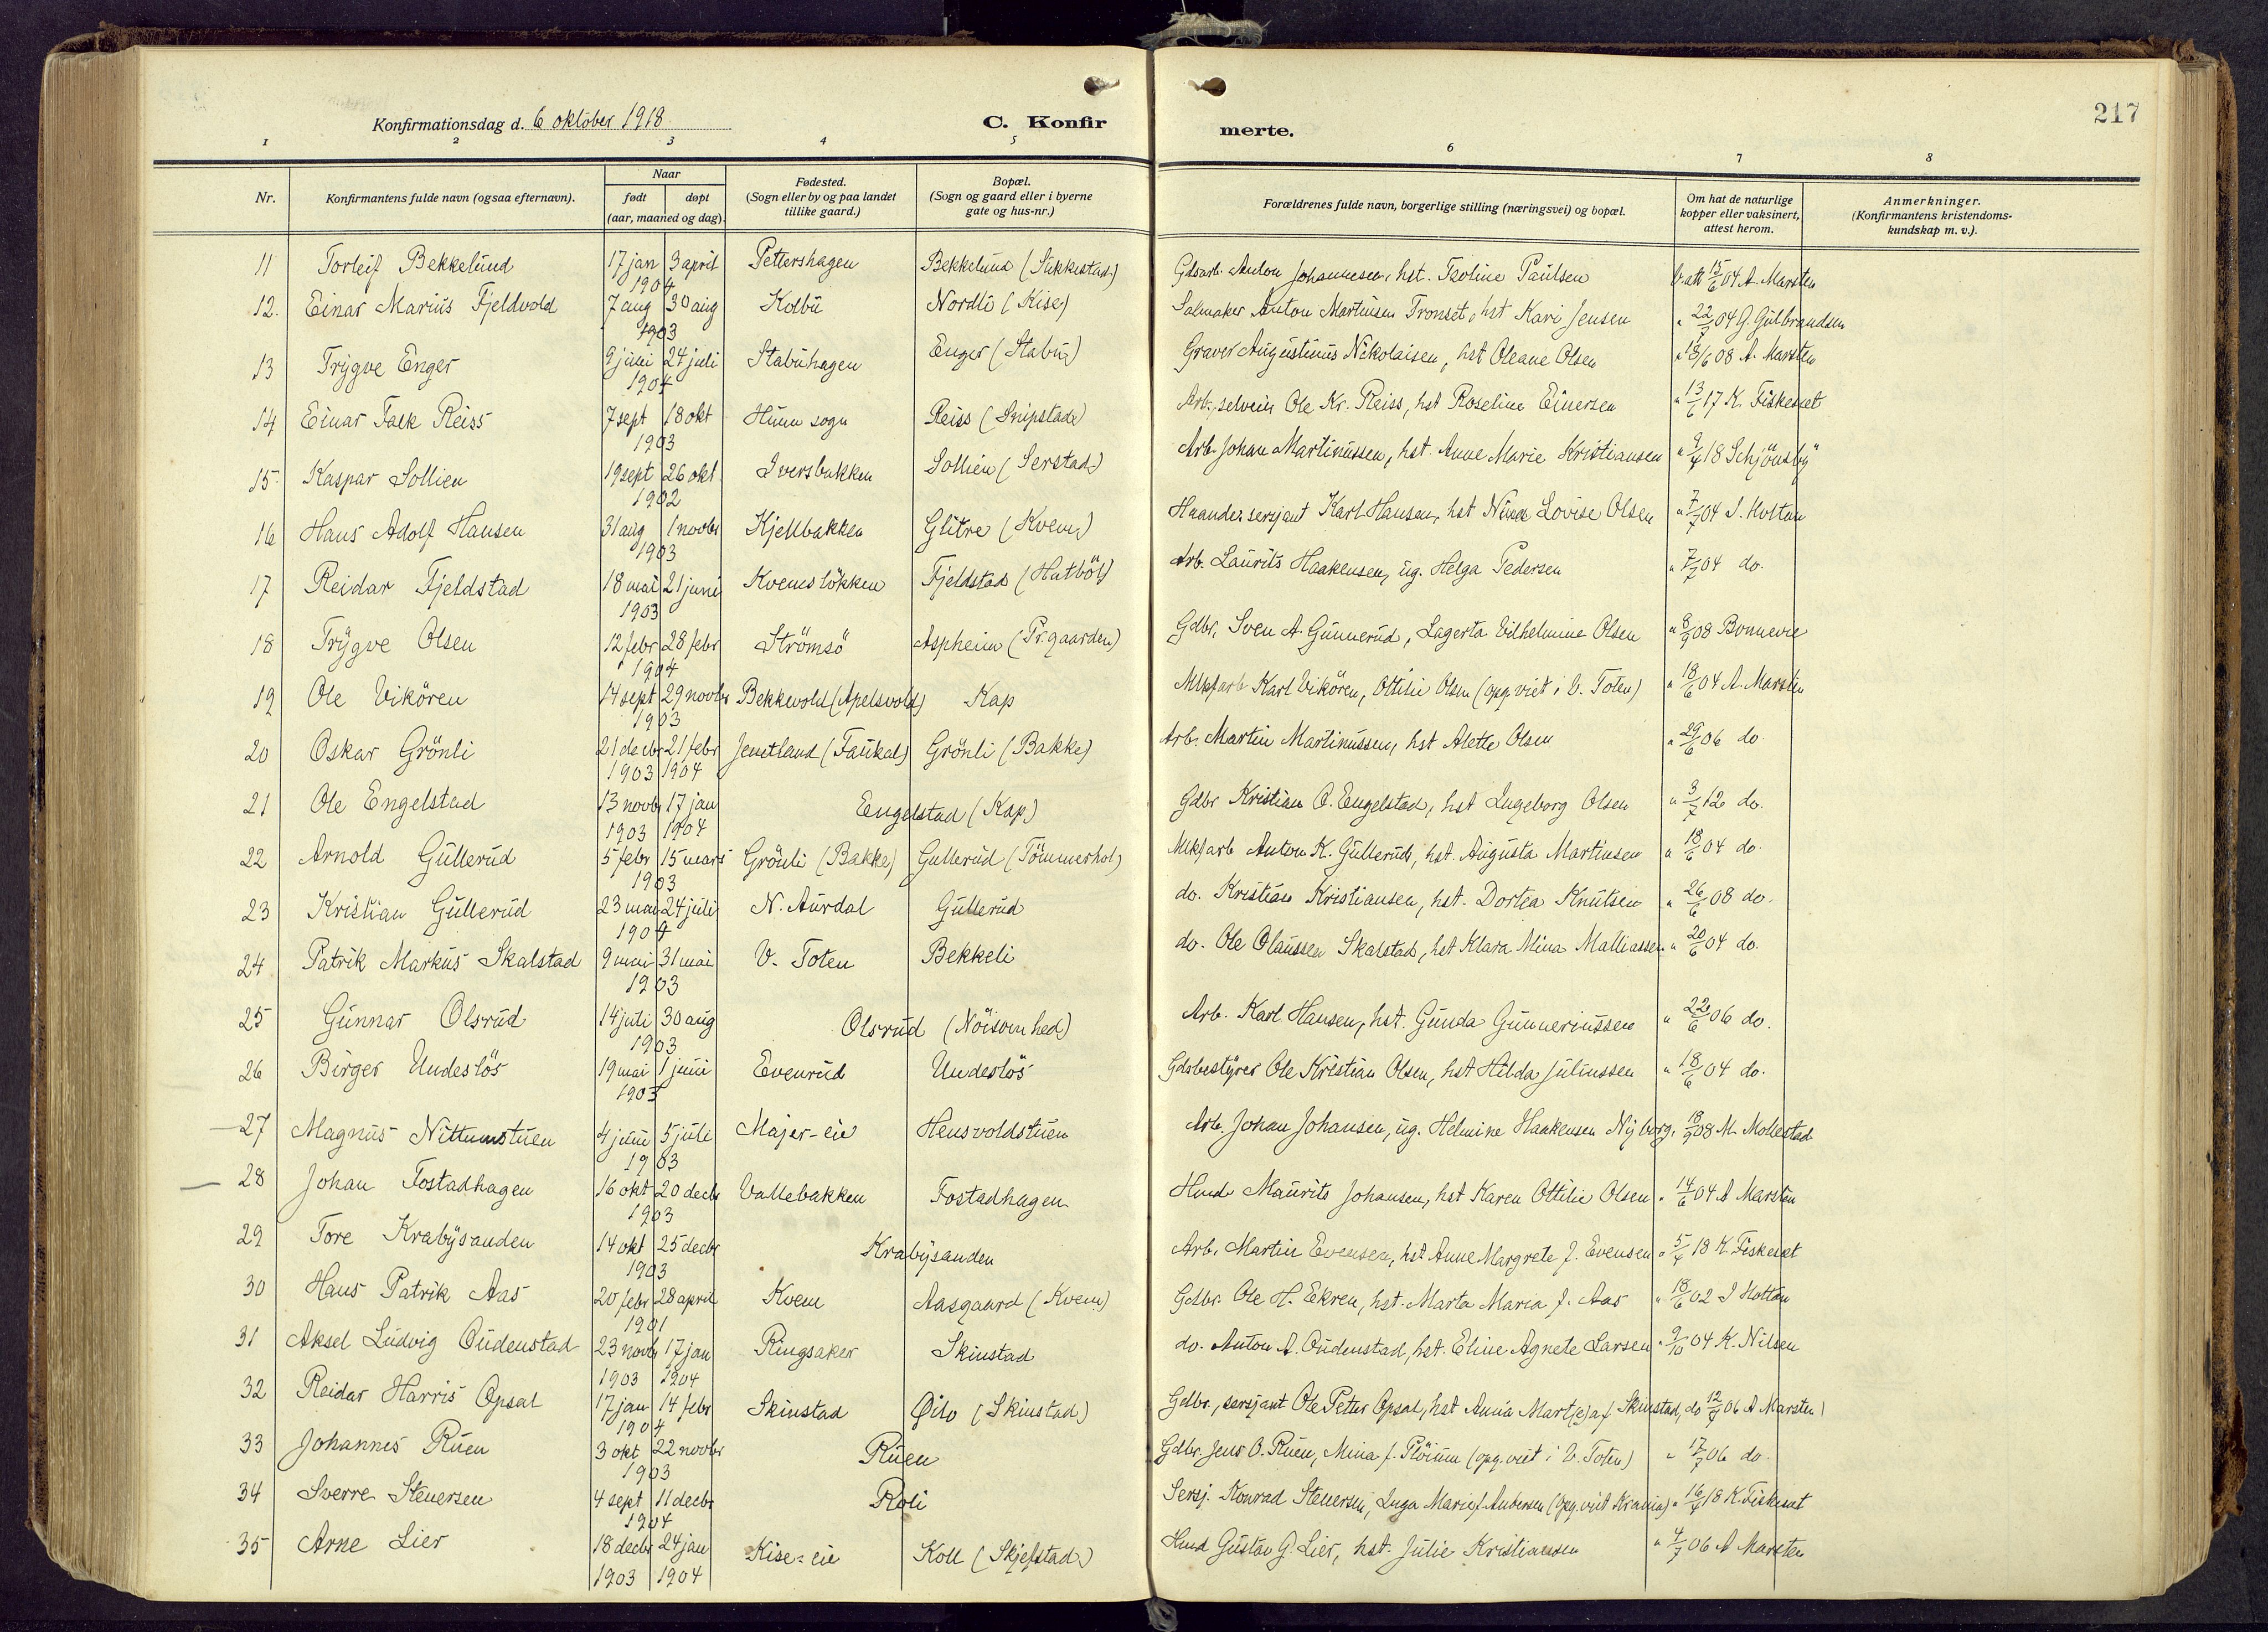 217
Konfirmationsdag d. 6 oktober 1918
C. Konfir merte.
1 2 3 4 5 6 7 8
Nr.
Konfirmantens fulde navn (ogsaa efternavn).
Naar
født døpt
(aar, maaned og dag).
Fødested.
(Sogn eller by og paa landet
tillike gaard.)
Bopæl.
(Sogn og gaard eller i byerne
gate og hus-nr.)
Forældrenes fulde navn, borgerlige stilling (næringsvei) og bopæl.
Om hat de naturlige
kopper eller vaksinert,
attest herom.
Anmerkninger.
(Konfirmantens kristendoms-
kundskap m. v.).
11 Torleif Bekkelund 17 jan 3 april 1904 Pettershagen Bekkelund (Sukkestad) Gdsarb. Anton Johannesen, hst. Paulsen V. att 15/6 04 A. Marsten
12. Einar Marius Fjeldvold 7 aug 30 aug 1903 Kolbu Nordli (Kise) Salmaker Anton Martinsen Tronset, hst Kari Jensen " 22/7 04 G. Gulbrandsen
13 Trygve Enger 9 juni 24 juli 1904 Stabuhagen Enger (Stabu) Graver Augustinus Nikolaisen, hst Oleane Olsen " 18/6 08 A. Marsten
14 Einar Falk Reiss 7 sept 18 okt 1903 Hunn sogn Reiss (Snipstad) Arb., selveier Ole Kr. Reiss, hst Roseline Einersen " 13/6 17 K. Fiskeset
15 Kaspar Sollien 19 sept 26 okt 1902 Iversbakken Sollien (Serstad) Arb. Johan Martinussen, hst. Anne Marie Kristiansen " 9/4 18 Schjönsby
16 Hans Adolf Hansen 31 aug 1 novbr 1903 Kjellbakken Glitre (Kvem) sersjant Karl Hansen, hst Lovise Olsen " 7/7 04 J. Holtan
17 Reidar Fjeldstad 18 mai 21 juni 1903 Kvemslökken Fjeldstad (Hutböl) Arb. Laurits Haakensen, ug. Helga Pedersen " 7/7 04 do.
18 Trygve Olsen 12 febr 28 febr 1904 Strömsö Aspheim (Pr.gaarden) Gdbr. Sven A. Gunnerud, Lagerta Vilhelmine Olsen " 8/9 08 Bonnevie
19 Ole Vikören 14 sept 29 novbr 1903 Bekkevold (Apelsvold) Kap Mlkf arb Karl Vikören, Ottilie Olsen (opg. viet i V. Toten) " 18/6 04 A. Marsten
20 Oskar Grönli 21 decbr 21 febr 1903 1904 Jemtland (Faukal) Grönli (Bakke) Arb. Martin Martinussen, hst Alette Olsen " 29/6 06 do
21 Ole Engelstad 13 novbr 17 jan 1903 1904 Engelstad (Kap) Gdbr Kristian O. Engelstad, hst Ingeborg Olsen " 3/7 12 do.
22 Arnold Gullerud 5 febr 15 mars 1903 Grönli (Bakke) Gullerud (Tömmerhol) Mlkf arb Anton K. Gullerud, hst. Augusta Martinsen " 18/6 04 do.
23 Kristian Gullerud 23 mai 24 juli 1904 N. Aurdal Gullerud do. Kristian Kristiansen, hst. Dortea Knutsen " 26/6 08 do.
24 Patrik Markus Skalstad 9 mai 31 mai 1903 V. Toten Bekkeli do. Ole Olaussen Skalstad, hst Klara Mina Mathiassen " 20/6 04 do.
25 Gunnar Olsrud 14 juli 30 aug 1903 Olsrud (Nöisomhed) Arb. Karl Hansen, hst. Gunda Gunneriussen " 22/6 06 do.
26 Birger Undeslös 19 mai 1 juni 1903 Evenrud Undeslös Gdsbestyrer Ole Kristian Olsen, hst Hilda Juliussen " 18/6 04 do.
27 Magnus Nittumstuen 4 juni 5 juli 1903 Majer-eie Hensvoldstuen Arb. Johan Johansen, ug. Helmine Haakensen Nyborg. 18/9 08 M. Mollestad
28 Johan Fostadhagen 16 okt 20 decbr 1903 Vallebakken Fostadhagen Hmd. Maurits Johansen, hst Karen Ottilie Olsen " 14/6 04 A Marsten
29 Tore Krabysanden 14 okt 25 decbr 1903 Krabysanden Arb. Martin Evensen, hst Anne Margrete J. Evensen " 5/4 18 K. Fiskeset
30 Hans Patrik Aas 20 febr 28 april 1901 Kvem Aasgaard (Kvem) Gdbr. Ole H. Ekren, hst. Marta Maria J. Aas " 18/6 02 J Holtan
31 Aksel Ludvig Oudenstad 23 novbr 17 jan 1903 1904 Ringsaker Skinstad do. Anton A. Oudenstad, hst. Eline Agnete Larsen " 9/10 04 K. Nilsen
32 Reidar Harris Opsal 17 jan 14 febr 1904 Skinstad Öilo (Skinstad) Gdbr., sersjant Ole Petter Opsal, hst Anna Mart(e) af Skinstad, do 12/7 06 A Marsten
33 Johannes Ruen 3 okt 22 novbr 1903 Ruen Gdbr. Jens O. Ruen, Mina f. Plöium (opg. viet i V. Toten) " 17/7 06 do.
34 Sverre Stenersen 4 sept 11 decbr 1904 Roli Sersj. Konrad Stenersen, Inga Marie f. Andersen (opg. viet Krania) " 16/4 18 K. Fiskeset
35 Arne Lier 18 decbr 24 jan 1903 1904 Kise-eie Koll (Skjefstad) Hmd Gustav G. Lier, hst. Julie Kristiansen " 4/7 06 A Marsten